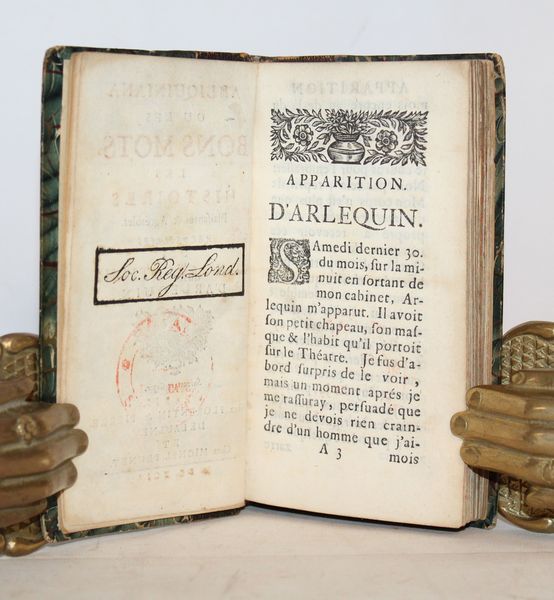 Soc. Reg. Lond.
APPARITION.
D'ARLEQUIN.
SAmedi dernier 30.
du mois, ſur la mi-
nuit en ſortant de
mon cabinet, Ar-
lequin m'apparut. Il avoit
ſon petit chapeau, ſon maſ-
que & l'habit qu'il portoit
ſur le Théatre. Je fus d'a-
bord surpris de le voir,
mais un moment aprés je
me raſſuray, perſuadé que
je ne devois rien crain-
dre d'un homme que j'ai-
A 3 mois